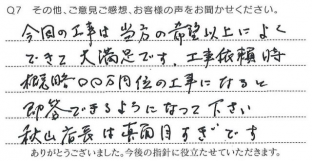 Q7 その他、ご意見ご感想、お客様の声をお聞かせください。
今回の工事は当方の希望以上によく
できて大満足です。工事依頼時
概略〇〇万円位の工事になると
即答できるようになって下さい
秋山店長は真面目すぎです
ありがとうございました。今後の指針に役立たせていただきます。